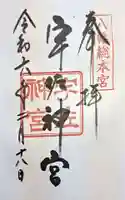 奉拝
八幡総本宮
宇佐神宮
宇佐神宮
令和六年二月十八日